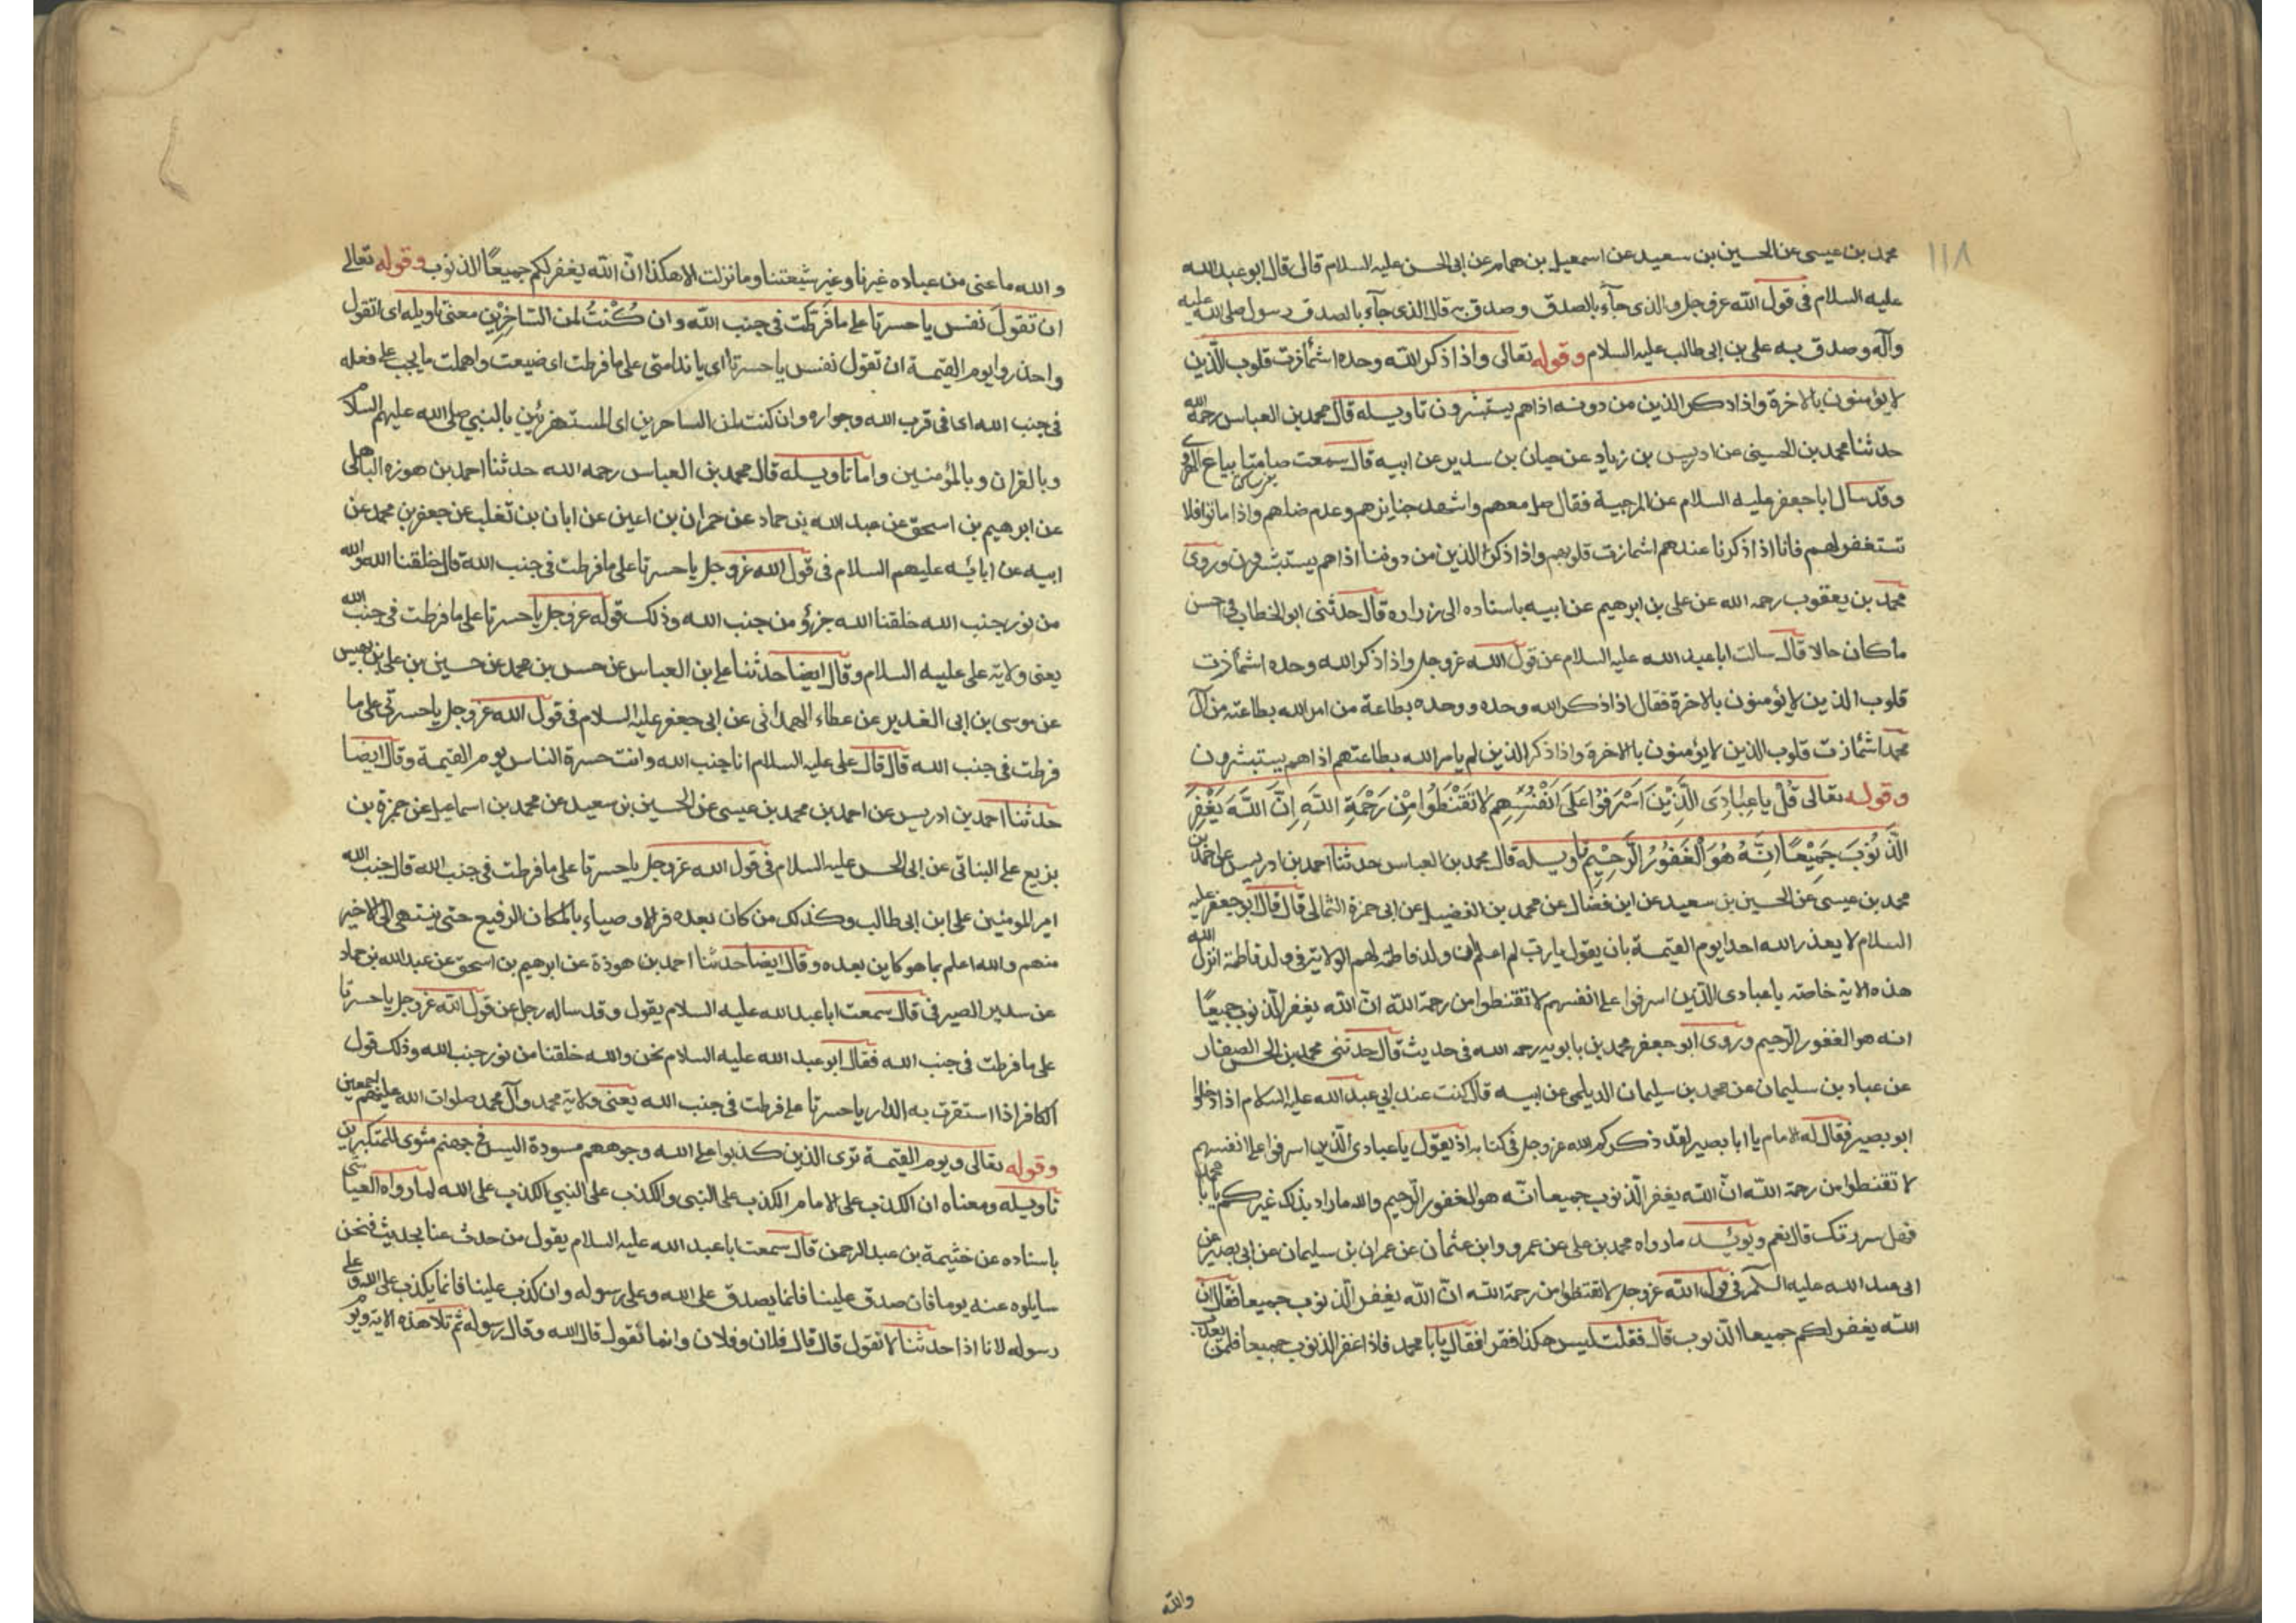 ١١٨
محمد بن عيسى عن الحسين بن سعيد عن اسمعيل بن همام عن ابى الحسن عليه السلام قال قال ابو عبد الله
عليه السلام فى قول الله عز وجل والذى جآء بالصدق وصدق به قال الذى جآء بالصدق رسول صلى الله عليه
وآله وصدق به على بن ابى طالب عليه السلام وقوله تعالى واذا ذكر الله وحده اشمأزت قلوب الذين
لا يؤمنون بالاخرة واذا ذكر الذين من دونه اذا هم يستبشرون تاويله قال محمد بن العباس رحمه الله
حدثنا محمد بن الحسينى عن ادريس بن زياد عن حيان بن سدير عن ابيه قال سمعت صامتا بياع الهروى
وقد سال ابا جعفر عليه السلام عن المرجيية فقال صل معهم واشهد جنايزهم وعدم ضاهم واذا ماتوا فلا
تستغفر لهم فانا اذا ذكرنا عندهم اشمازت قلوبهم واذا ذكر الذين من دوننا اذا هم يستبشرون وروى
محمد بن يعقوب رحمه الله عن على بن ابرهيم عن ابيه باسناده الى زراره قال حدثنى ابو الخطاب فى احسن
ماكان حالا قال سالت ابا عبد الله عليه السلام عن قول الله عز وجل واذا ذكر الله وحده اشمأزت
قلوب الذين لا يؤمنون بالاخرة فقال اذا ذكر الله وحده ووحده بطاعة من امر الله بطاعته من آل
محمد اشمأزت قلوب الذين لا يؤمنون بالاخرة واذا ذكر الذين لم يامر الله بطاعتهم اذا هم يستبشرون
وقوله تعالى قُلْ يا عِبٰادِىَ الَّذِيْنَ اَسْرَفُوْا عَلَى اَنْفُسِهِم لاٰ تَقْنَطُوا مِنْ رَحْمَةِ اللّهِ اِنَّ اللّهَ يَغْفِرُ
الذُّنُوْبَ جَمِيْعًا اِنَّهُ هُوَ الْغَفُوْرُ الرَّحِيْمِ تاويله قال محمد بن العباس حدثنا احمد بن ادريس عن احمد بن
محمد بن عيسى عن الحسين بن سعيد عن ابن فضال عن محمد بن الفضيل عن ابى حمزة الثمالى قال قال ابو جعفر عليه
السلام لا يعذر الله احدا يوم القيمة بان يقول يا رب لم اعلم ان ولد فاطمة لهم الولاية وفى ولد فاطمة انزل الله
هذه الاية خاصة يا عبادى الذين اسرفوا على انفسهم لا تقنطوا من رحمة الله انّ الله يغفر الذنوب جميعًا
انه هو الغفور الرحيم وروى ابو جعفر محمد بن بابويه رحمه الله فى حديث قال حدثنى محمد بن الحسن الصفار
عن عباد بن سليمان عن محمد بن سليمان الديلمى عن ابيه قال كنت عند ابى عبد الله عليه السلام اذا دخلوا
ابو بصير فقال له الامام يا ابا بصير لقد ذكركم الله عز وجل فى كتابه اذ يقول يا عبادى الذين اسرفوا على انفسهم
لا تقنطوا من رحمة الله انّ الله يغفر الذنوب جميعا انّه هو الغفور الرحيم والله ما اراد بذلك غيركم يا با محمد
فهل سررتك قال نعم ويؤيد ما رواه محمد بن على عن عمرو وابن عثمان عن عمران بن سليمان عن ابى بصير عن
ابى عبد الله عليه السلم فى قول الله عز وجل لا تقنطوا من رحمة الله انّ الله يغفر الذنوب جميعا فقال ان
الله يغفر لكم جميعا الذنوب قال فقلت ليس هكذا نقرا فقال يا با محمد فاذا غفر الذنوب جميعا فلمن يعذب
والله
والله ما عنى من عباده غيرنا وغير شيعتنا وما نزلت الا هكذا انّ الله يغفر لكم جميعًا الذنوب وقوله تعالى
ان تقول نفس يا حسرتا على ما فرّطت فى جنب الله وان كُنْتُ لمن الساخِرِين معنى تاويله اى اتقول
واحذروا يوم القيمة ان تقول نفس يا حسرتا اى يا ندامتى على ما فرطت اى ضيعت واهملت ما يجب على فعله
فى جنب الله اى فى قرب الله وجواره وان كنت لمن الساخرين اى المستهزئين بالنبي صلى الله عليهم السلام
وبالقران وبالمؤمنين واما تاويله قال محمد بن العباس رحمه الله حدثنا احمد بن هوزه الباهلى
عن ابرهيم بن اسحق عن عبد الله بن حماد عن حمران بن اعين عن ابان بن تغلب عن جعفر بن محمد عن
ابيه عن ابايه عليهم السلام فى قول الله عز وجل يا حسرتا على ما فرطت فى جنب الله قال خلقنا الله والله
من نور جنب الله خلقنا الله جزؤ من جنب الله وذلك قوله عز وجل يا حسرتا على ما فرطت فى جنب الله
يعنى ولاية على عليه السلام وقال ايضا حدثنا على بن العباس عن حسن بن محمد عن حسين بن على بن بهيس
عن موسى بن ابى الغدير عن عطاء الهمدانى عن ابى جعفر عليه السلام فى قول الله عز وجل يا حسرتى على ما
فرطت فى جنب الله قال قال على عليه السلام انا جنب الله وانت حسرة الناس يوم القيمة وقال ايضا
حدثنا احمد بن ادريس عن احمد بن محمد بن عيسى عن الحسين بن سعيد عن محمد بن اسماعيل عن حمزة بن
بزيع على البناتى عن ابى الحسن عليه السلام فى قول الله عز وجل يا حسرتا على ما فرطت فى جنب الله قال جنب الله
امير المومنين على ابن ابى طالب وكذلك من كان بعده فر الاوصياء بالمكان الرفيع حتى ينتهى الى الاخير
منهم والله اعلم بما هو كاين بعده وقال ايضا حدثنا احمد بن هوذة عن ابرهيم بن اسحق عن عبد الله بن حماد
عن سدير الصيرفى قال سمعت ابا عبد الله عليه السلام يقول وقد ساله رجل عن قول الله عز وجل يا حسرتا
على ما فرطت فى جنب الله فقال ابو عبد الله عليه السلام نحن والله خلقنا من نور جنب الله وذلك قول
الكافر اذا استقرت به الدار يا حسرتا على فرطت فى جنب الله يعنى ولاية محمد وآل محمد صلوات الله عليهم اجمعين
وقوله تعالى ويوم القيمة ترى الذين كذبوا على الله وجوههم مسودة اليس فى جهنم مثوى للمتكبرين
تاويله ومعناه ان الكذب على الامام الكذب على النبى والكذب على النبي الكذب على الله لما رواه العياشى
باسناده عن خثيمة بن عبد الرحمن قال سمعت ابا عبد الله عليه السلام يقول من حدث عنا بحديث فنحن
سايلوه عنه يوما فان صدق علينا فانما يصدق على الله وعلى رسوله وان كذب علينا فانما يكذب على الله وعلى
رسوله لانا اذا حدثنا لا نقول قال قال فلان وفلان وانما نقول قال الله وقال رسوله ثم تلا هذه الاية ويوم